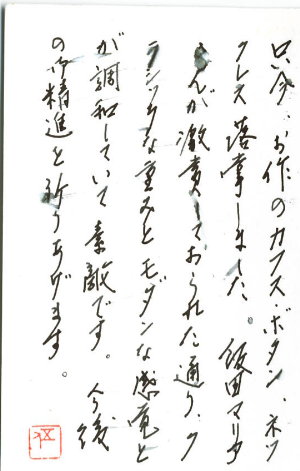 只今、お作のカフス・ボタン、ネッ
クレス落掌しました。飯田マリア
さんが激賞しておられた通り、ク
ラシックな重みとモダンな感覚と
が調和していて素敵です。今後
の御精進を祈りあげます。